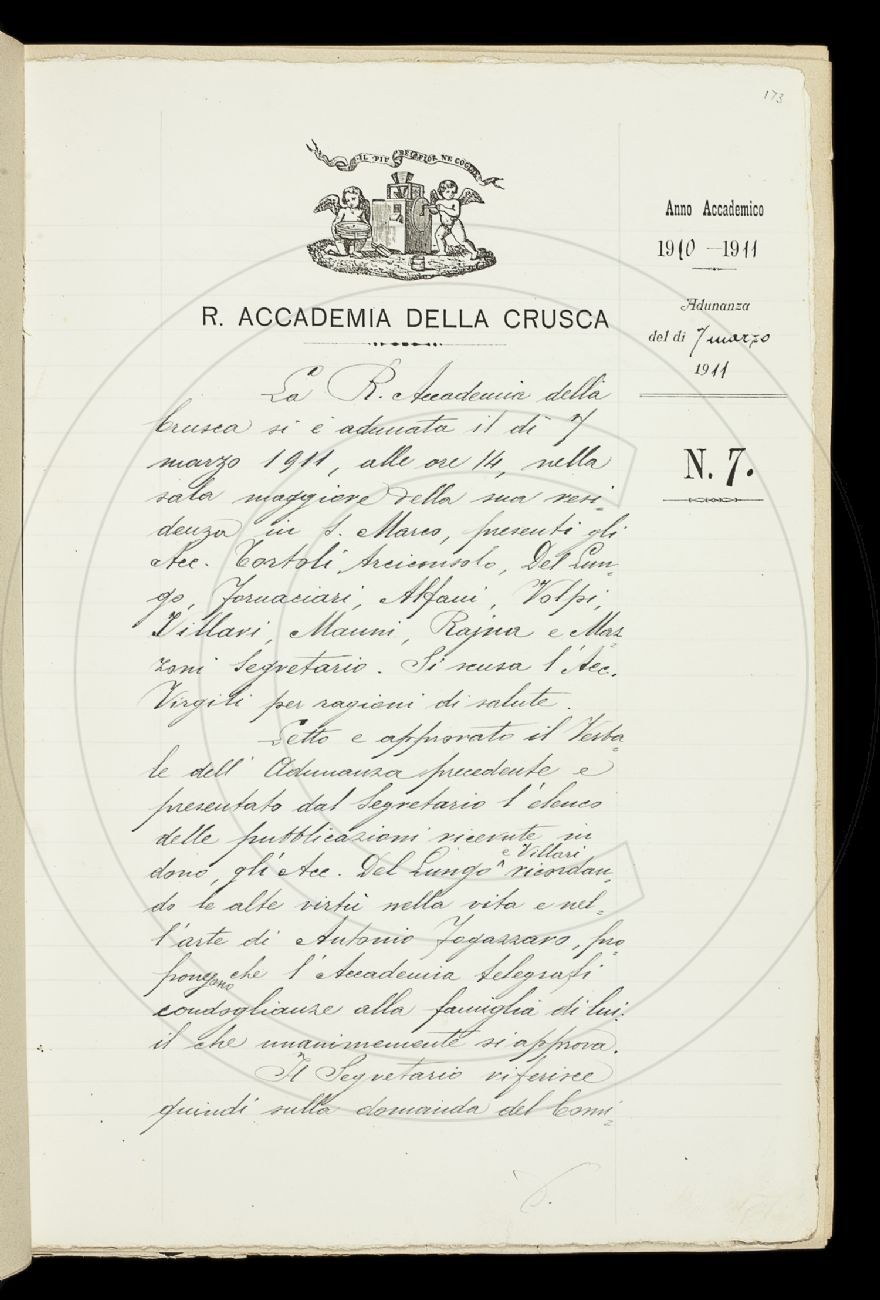 173
IL PIÙ BEL FIOR NE COGLIE
Anno Accademico
1910 - 1911
Adunanza
del dì 7 marzo
1911
N. 7.
R. ACCADEMIA DELLA CRUSCA
La R. Accademia della
Crusca si è adunata il dì 7
marzo 1911, alle ore 14, nella
sala maggiore della sua resi-
denza in S. Marco, presenti gli
Acc. Tortoli Arciconsolo, Del Lun-
go, Fornaciari, Alfani, Volpi,
Villari, Manni, Rajna e Maz-
zoni Segretario. Si scusa l'Acc.
Virgili per ragioni di salute.
Letto e approvato il Verba-
le dell'Adunanza precedente e
presentato dal Segretario l'elenco
delle pubblicazioni ricevute in
dono, gli Acc. Del Lungo e Villari ricordan-
do le alte virtù nella vita e nel-
l'arte di Antonio Fogazzaro, pro-
pongono che l'Accademia telegrafi
condoglianze alla famiglia di lui:
il che unanimemente si approva.
Il Segretario riferisce
quindi sulla domanda del Comi-